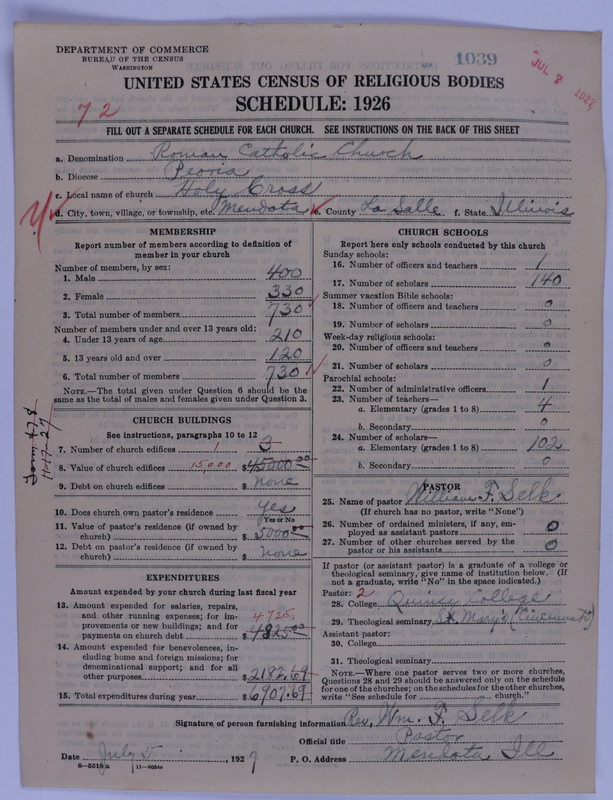 DEPARTMENT OF COMMERCE
BUREAU OF THE CENSUS
WASHINGTON
1039
JUL 2 1927
UNITED STATES CENSUS OF RELIGIOUS BODIES
SCHEDULE: 1926
72
FILL OUT A SEPARATE SCHEDULE FOR EACH CHURCH. SEE INSTRUCTIONS ON THE BACK OF THIS SHEET
a. Denomination Roman Catholic Church
b. Diocese Peoria
c. Local name of church Holy Cross
d. City, town, village, or township, etc. Mendota e. County La Salle f. State Illinois
MEMBERSHIP
Report number of members according to definition of
member in your church
Number of members, by sex:
1. Male 400
2. Female 330
3. Total number of members 730
Number of members under and over 13 years old:
4. Under 13 years of age 210
5. 13 years old and over 120
6. Total number of members 730
NOTE.—The total given under Question 6 should be the
same as the total of males and females given under Question 3.
CHURCH BUILDINGS
See instructions, paragraphs 10 to 12
7. Number of church edifices 1 3
8. Value of church edifices 15,000 $45000.00
9. Debt on church edifices $ none
10. Does church own pastor's residence? yes
Yes or No
11. Value of pastor's residence (if owned by
church) $5000.00
12. Debt on pastor's residence (if owned by
church) $ none
EXPENDITURES
Amount expended by your church during last fiscal year
13. Amount expended for salaries, repairs,
and other running expenses; for im- 4725
provements or new buildings; and for
payments on church debt $4825.00
14. Amount expended for benevolences, in-
cluding home and foreign missions; for
denominational support; and for all
other purposes $2182.69
15. Total expenditures during year $6907.69
CHURCH SCHOOLS
Report here only schools conducted by this church
Sunday schools:
16. Number of officers and teachers 1
17. Number of scholars 140
Summer vacation Bible schools:
18. Number of officers and teachers 0
19. Number of scholars 0
Week-day religious schools:
20. Number of officers and teachers 0
21. Number of scholars 0
Parochial schools:
22. Number of administrative officers 1
23. Number of teachers—
a. Elementary (grades 1 to 8) 4
b. Secondary 0
24. Number of scholars—
a. Elementary (grades 1 to 8) 102
b. Secondary 0
PASTOR
25. Name of pastor William F. Selk
(If church has no pastor, write "None")
26. Number of ordained ministers, if any, em-
ployed as assistant pastors 0
27. Number of other churches served by the
pastor or his assistants 0
If pastor (or assistant pastor) is a graduate of a college or
theological seminary, give name of institution below. (If
not a graduate, write "No" in the space indicated.)
Pastor: 2
28. College Quincy College
29. Theological seminary St Mary's (Cincinnati)
Assistant pastor:
30. College
31. Theological seminary
NOTE.—Where one pastor serves two or more churches,
Questions 28 and 29 should be answered only on the schedule
for one of the churches; on the schedules for the other churches,
write "See schedule for church."
Signature of person furnishing information Rev. Wm. F. Selk
Official title Pastor
Date July 5, 1927 P. O. Address Mendota Ill
8—5518a 11—9054a